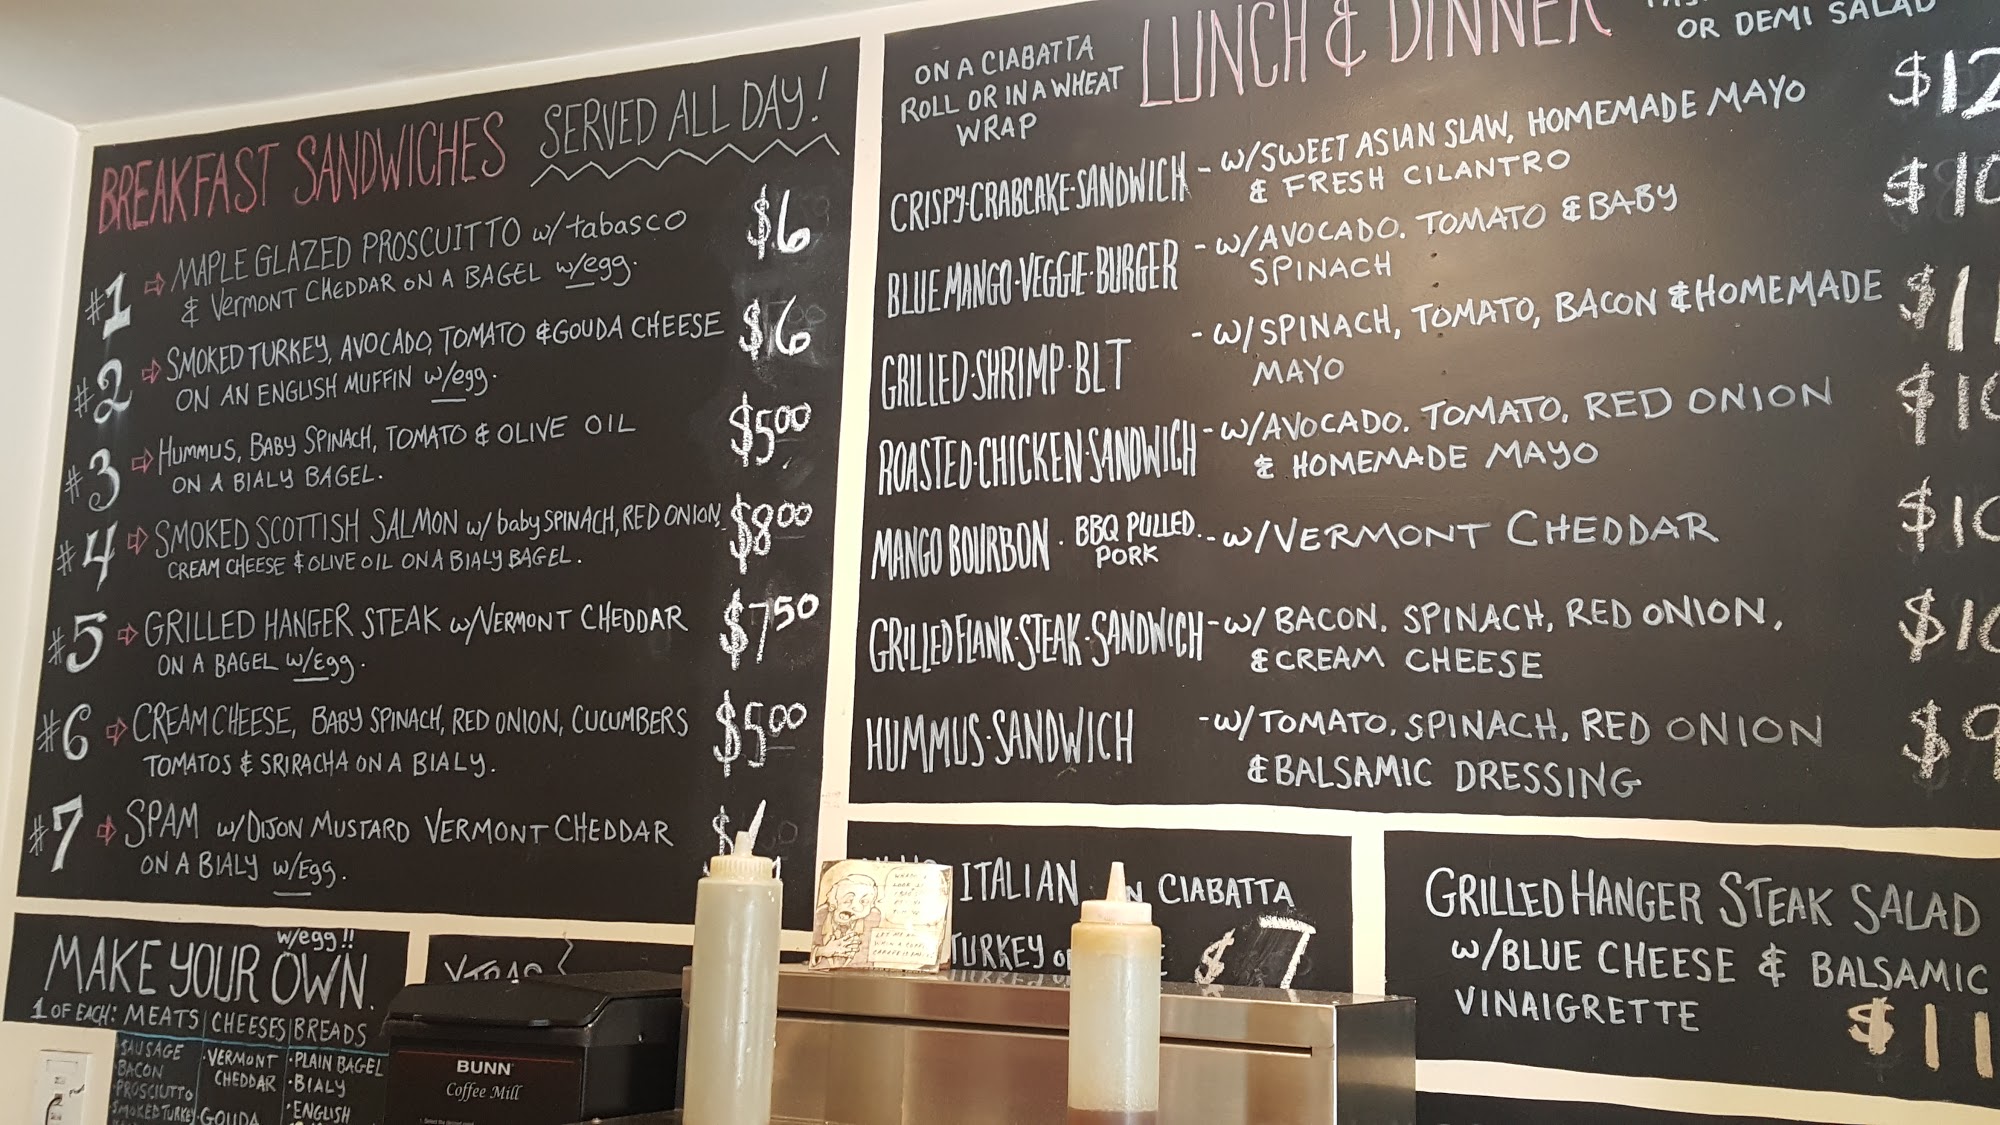 BREAKFAST SANDWICHES SERVED ALL DAY!
#1 ⇨ MAPLE GLAZED PROSCUITTO w/ tabasco $6
& Vermont CHEDDAR ON A BAGEL w/egg.
#2 ⇨ SMOKED TURKEY, AVOCADO, TOMATO & GOUDA CHEESE $6
ON AN ENGLISH MUFFIN w/egg.
#3 ⇨ HUMMUS, BABY SPINACH, TOMATO & OLIVE OIL $5.00
ON A BIALY BAGEL.
#4 ⇨ SMOKED SCOTTISH SALMON w/ baby SPINACH, RED ONION, $8.00
CREAM CHEESE & OLIVE OIL ON A BIALY BAGEL.
#5 ⇨ GRILLED HANGER STEAK w/VERMONT CHEDDAR $7.50
ON A BAGEL w/Egg.
#6 ⇨ CREAM CHEESE, BABY SPINACH, RED ONION, CUCUMBERS $5.00
TOMATOS & SRIRACHA ON A BIALY.
#7 ⇨ SPAM w/DIJON MUSTARD VERMONT CHEDDAR $
ON A BIALY w/Egg.
LUNCH & DINNER
OR DEMI SALAD
ON A CIABATTA
ROLL OR IN A WHEAT
WRAP
CRISPY·CRABCAKE·SANDWICH - w/SWEET ASIAN SLAW, HOMEMADE MAYO $12
& FRESH CILANTRO
BLUE MANGO·VEGGIE·BURGER - w/AVOCADO. TOMATO & BABY $10
SPINACH
GRILLED·SHRIMP·BLT - w/SPINACH, TOMATO, BACON & HOMEMADE $11
MAYO
ROASTED·CHICKEN·SANDWICH - w/AVOCADO. TOMATO, RED ONION $10
& HOMEMADE MAYO
MANGO BOURBON · BBQ PULLED PORK - w/VERMONT CHEDDAR $10
GRILLED FLANK·STEAK·SANDWICH - w/ BACON. SPINACH, RED ONION, $10
& CREAM CHEESE
HUMMUS·SANDWICH - w/TOMATO. SPINACH, RED ONION $9
& BALSAMIC DRESSING
ITALIAN CIABATTA
TURKEY $7
GRILLED HANGER STEAK SALAD
w/BLUE CHEESE & BALSAMIC
VINAIGRETTE $11
w/egg!!
MAKE YOUR OWN.
1 OF EACH: MEATS | CHEESES | BREADS
SAUSAGE ·VERMONT ·PLAIN BAGEL
BACON CHEDDAR ·BIALY
PROSCIUTTO ·ENGLISH
SMOKED TURKEY ·GOUDA
BUNN
Coffee Mill